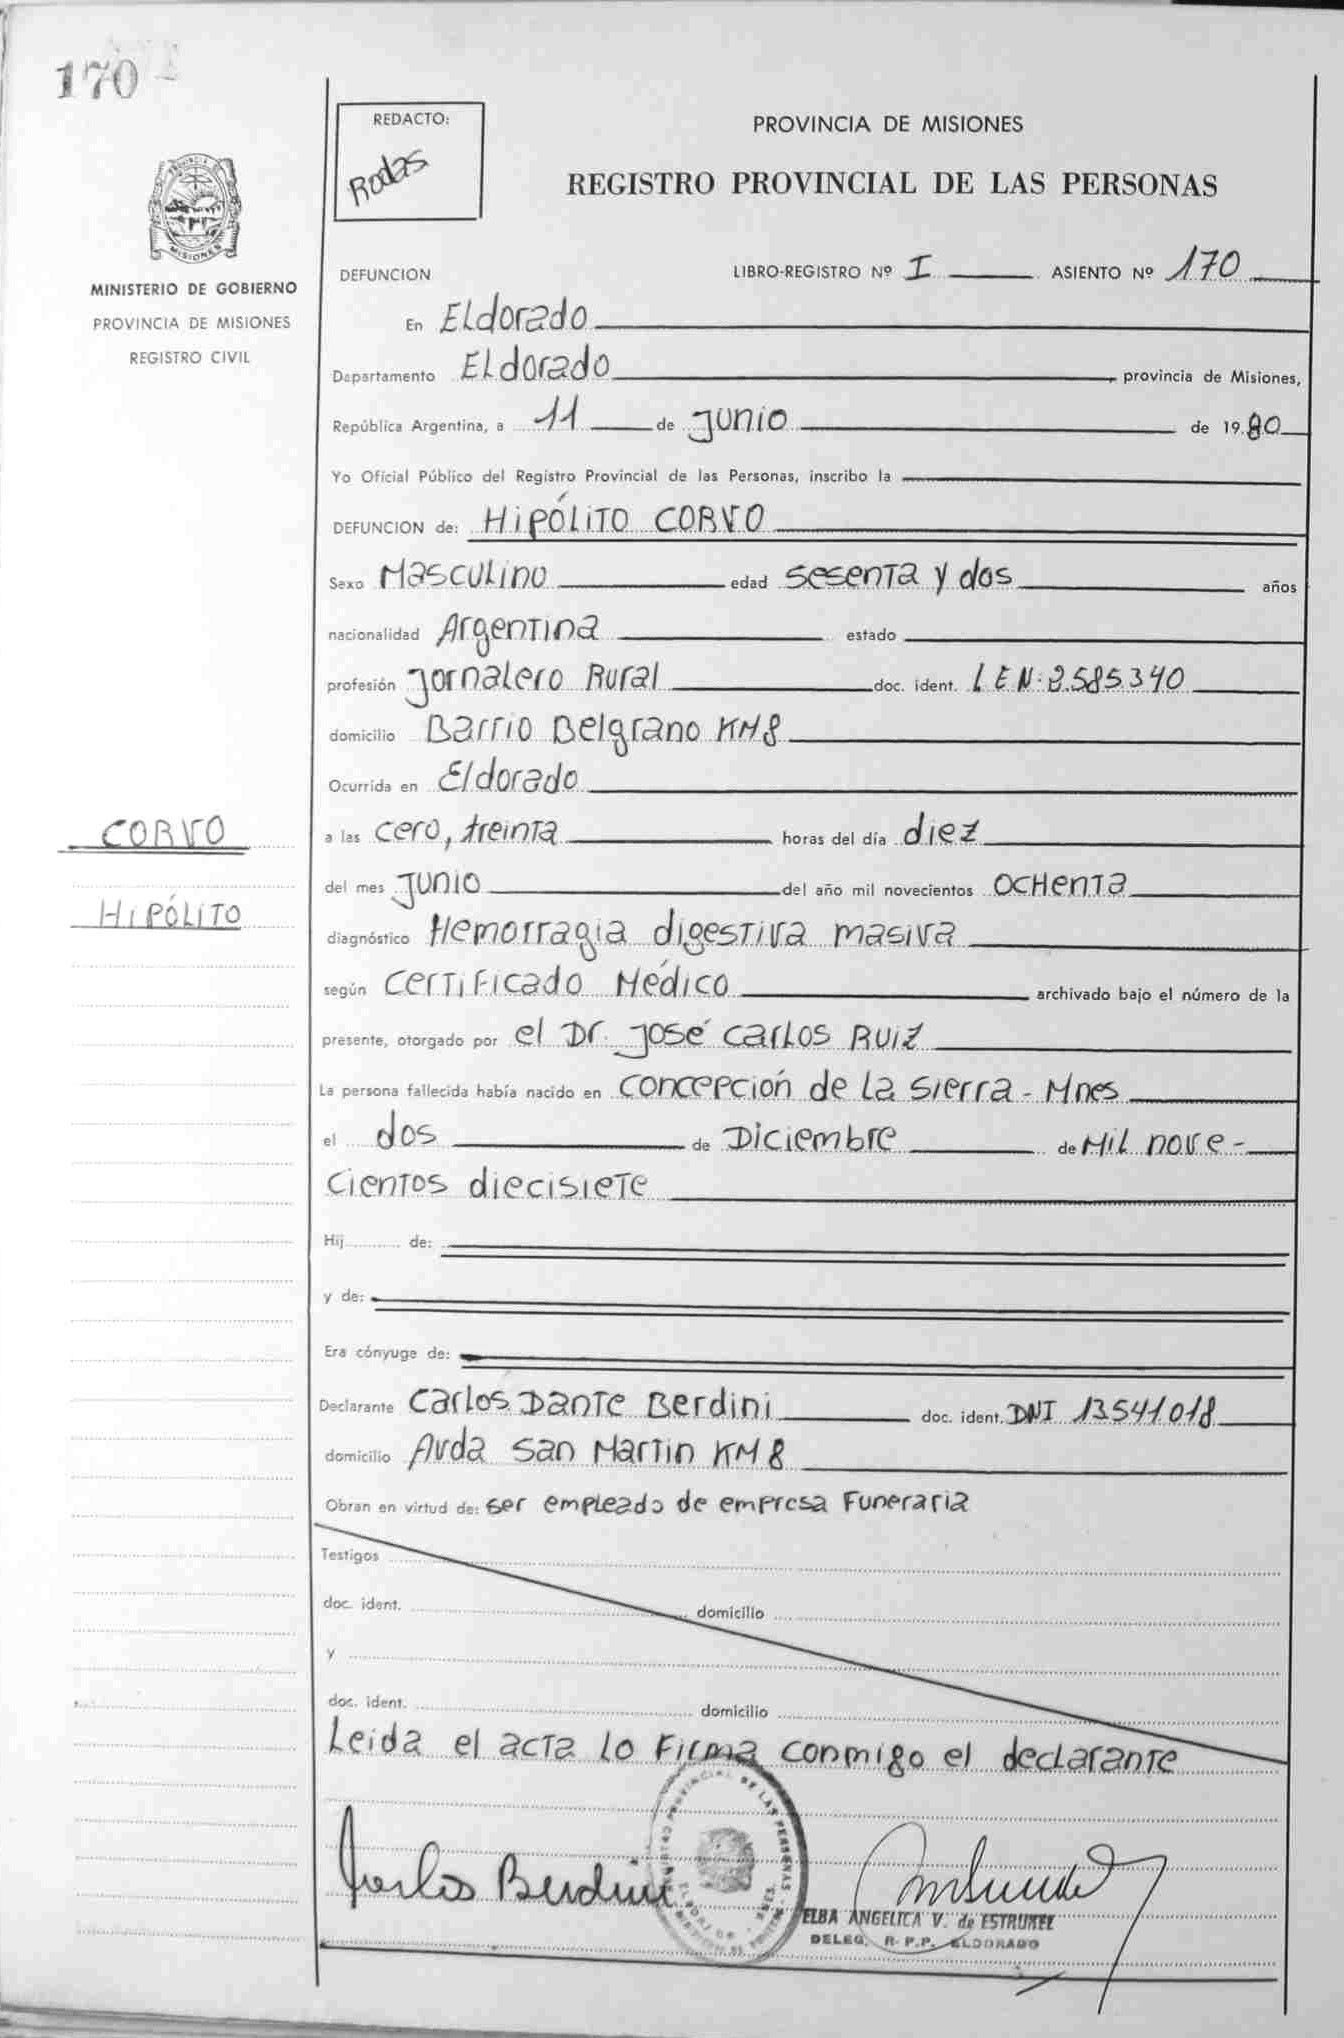 170
REDACTO:
Rodas
PROVINCIA DE MISIONES
REGISTRO PROVINCIAL DE LAS PERSONAS
MISIONES
MINISTERIO DE GOBIERNO
PROVINCIA DE MISIONES
REGISTRO CIVIL
DEFUNCION LIBRO-REGISTRO Nº I ASIENTO Nº 170
En ELdorado
Departamento ELdorado provincia de Misiones,
República Argentina, a 11 de junio de 1980
Yo Oficial Público del Registro Provincial de las Personas, inscribo la
DEFUNCION de: HiPÓLITO CORVO
Sexo Masculino edad sesenta y dos años
nacionalidad Argentina estado
profesión Jornalero Rural doc. ident. L E N: 2.585.340
domicilio Barrio Belgrano KM 8
Ocurrida en Eldorado
CORVO
a las cero, treinta horas del día diez
del mes junio del año mil novecientos OCHenta
HiPÓLITO
diagnóstico Hemorragia digestiva masiva
según Certificado Médico archivado bajo el número de la
presente, otorgado por el Dr. José Carlos Ruiz
La persona fallecida había nacido en Concepción de La Sierra - Mnes
el dos de Diciembre de Mil nove-
cientos diecisiete
Hij de:
y de:
Era cónyuge de:
Declarante Carlos Dante Berdini doc. ident. DNI 13541018
domicilio Avda San Martin KM 8
Obran en virtud de: ser empleado de empresa Funeraria
Testigos
doc. ident. domicilio
y
doc. ident. domicilio
Leida el acta lo Firma conmigo el declarante
Carlos Berdini
ELBA ANGELICA V. de ESTRUMEE
DELEG. R. P. P. ELDORADO